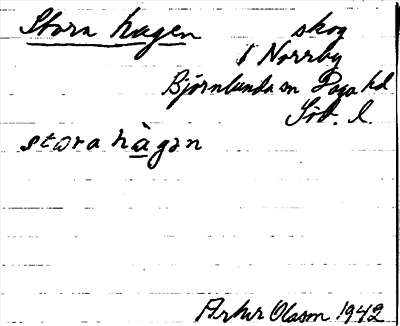 Stora hagen skog
i Norrby
Björnlunda sn Daga hd
Söd. l.
stora hàgən
Artur Olsson 1942